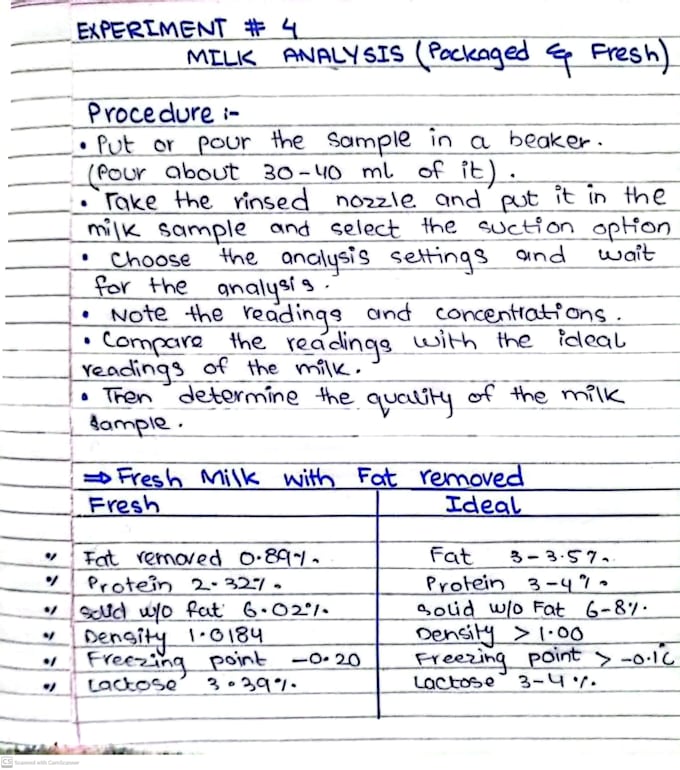 EXPERIMENT # 4
MILK ANALYSIS (Packaged & Fresh)
Procedure :-
• Put or pour the sample in a beaker.
(Pour about 30-40 ml of it).
• Take the rinsed nozzle and put it in the
milk sample and select the suction option
• Choose the analysis settings and wait
for the analysis.
• Note the readings and concentrations.
• Compare the readings with the ideal
readings of the milk.
• Then determine the quality of the milk
sample.
⇒ Fresh Milk with Fat removed
Fresh Ideal
Fat removed 0.89%. Fat 3-3.5%.
Protein 2.32%. Protein 3-4%.
Solid w/o Fat 6.02%. Solid w/o Fat 6-8%.
Density 1.0184 Density > 1.00
Freezing point -0.20 Freezing point > -0.1°C
Lactose 3.39%. Lactose 3-4%.
CS Scanned with CamScanner